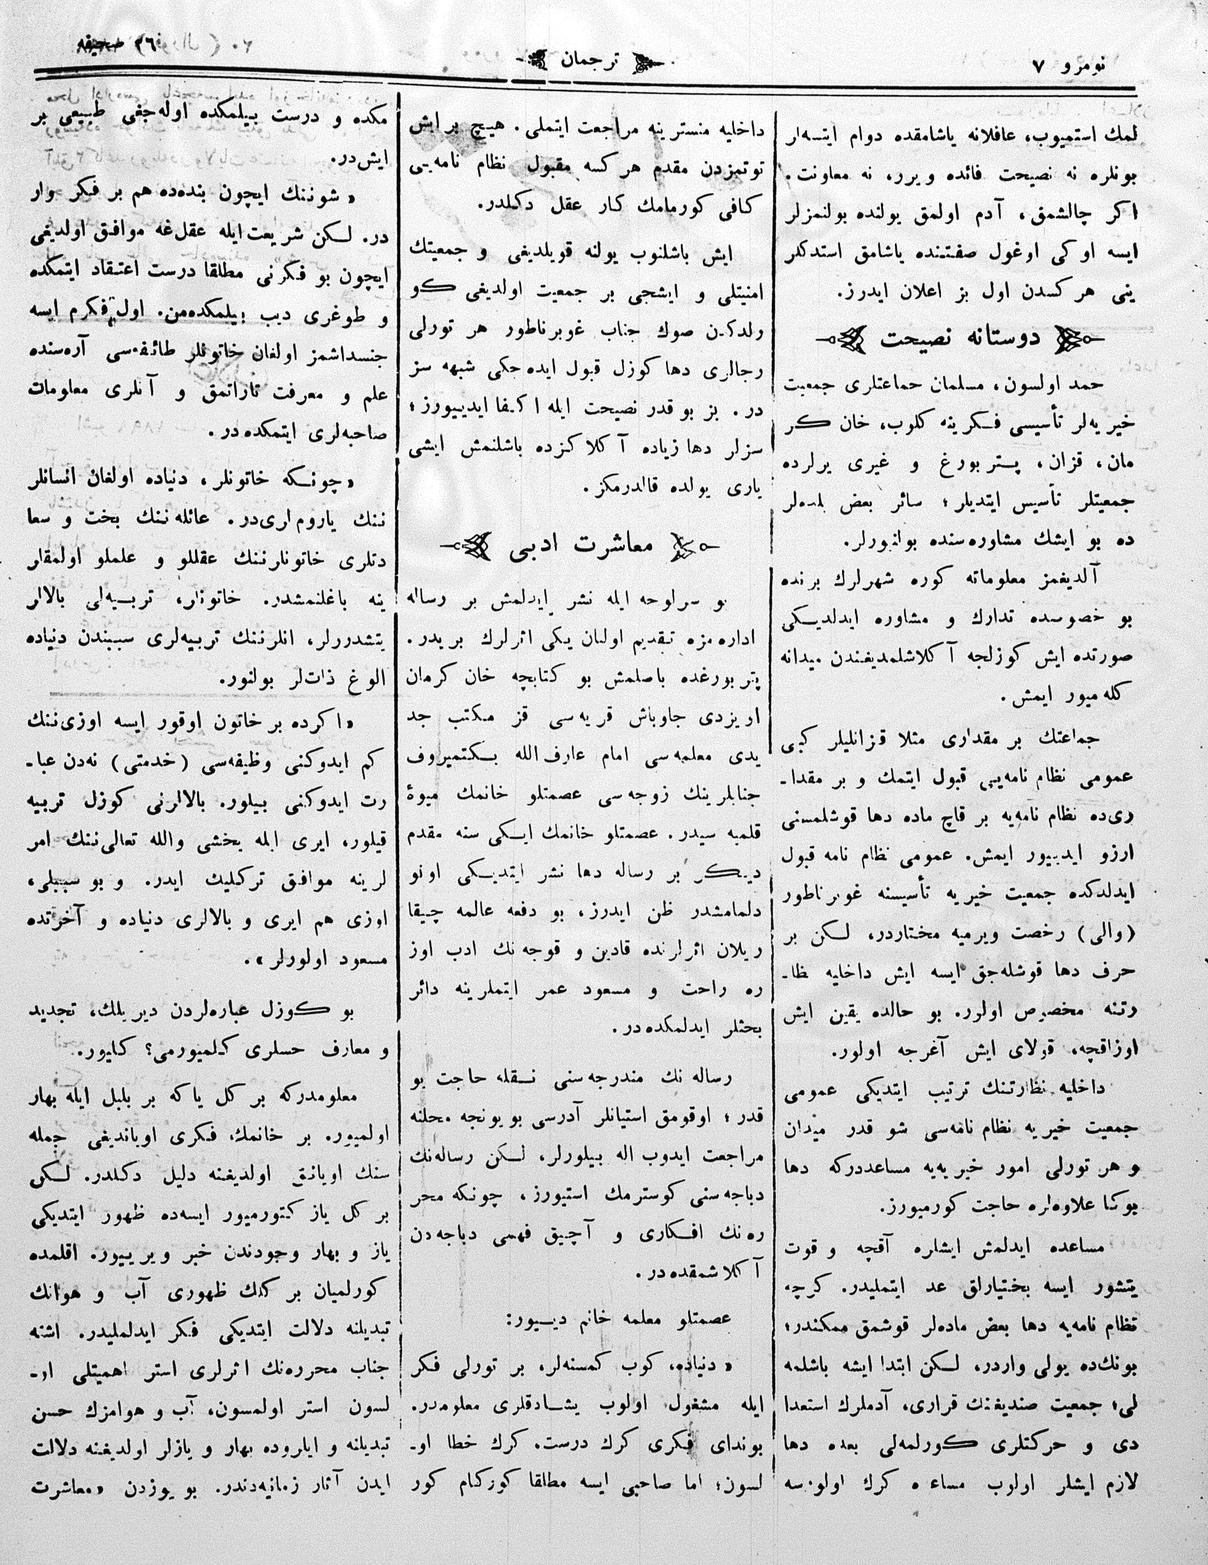 نومرو ٧
ترجمان
صحیفه
لمك استمیوب، عاقلانه یاشامقده دوام ایتسه‌لر
بونلره نه نصیحت فائده ویرر، نه معاونت.
اكر چالشمق، آدم اولمق یولنده بولنمزلر
ایسه اوكی اوغول صفتنده یاشامق استدكلر
ینی هركسدن اول بز اعلان ایدرز.
دوستانه نصیحت
حمد اولسون، مسلمان جماعتلری جمعیت
خیریه‌لر تأسیسی فكرینه كلوب، خان كر
مان، قزان، پتربورغ و غیری یرلرده
جمعیتلر تأسیس ایتدیلر؛ سائر بعض بلده‌لر
ده بو ایشك مشاوره‌سنده بولنورلر.
آلدیغمز معلوماته كوره شهرلرك برنده
بو خصوصده تدارك و مشاوره ایدلدیكی
صورتده ایش كوزلجه آكلاشلمدیغندن میدانه
كله‌میور ایمش.
جماعتك بر مقداری مثلا قزانلیلر كبی
عمومی نظام نامه‌یی قبول ایتمك و بر مقدا-
ری‌ده نظام نامه‌یه بر قاچ ماده دها قوشلمسنی
ارزو ایدییور ایمش. عمومی نظام نامه قبول
ایدلدكده جمعیت خیریه تأسیسنه غوبرناطور
(والی) رخصت ویرمیه مختاردر، لكن بر
حرف دها قوشله‌جق ایسه ایش داخلیه نظا-
رتنه مخصوص اولور. بو حالده یقین ایش
اوزاقچه، قولای ایش آغرجه اولور.
داخلیه نظارتنك ترتیب ایتدیكی عمومی
جمعیت خیریه نظام نامه‌سی شو قدر میدان
و هر تورلی امور خیریه‌یه مساعددركه دها
بوكا علاوه‌لره حاجت كورمیورز.
مساعده ایدلمش ایشلره آقچه و قوت
یتشور ایسه بختیارلق عد ایتملیدر. كرچه
نظام نامه‌یه دها بعض ماده‌لر قوشمق ممكندر؛
بونك‌ده یولی واردر، لكن ابتدا ایشه باشلمه
لی؛ جمعیت صندیغنك قراری، آدملرك استعدا
دی و حركتلری كورلمه‌لی بعده دها
لازم ایشلر اولوب مساعده كرك اولورسه
داخلیه منسترینه مراجعت ایتملی. هیچ بر ایش
توتمزدن مقدم هركسه مقبول نظام نامه‌یی
كافی كورمامك كار عقل دكلدر.
ایش باشلنوب یولنه قویلدیغی و جمعیتك
امنیتلی و ایشجی بر جمعیت اولدیغی كو
رلدكدن صوك جناب غوبرناطور هر تورلی
رجالری دها كوزل قبول ایده‌جكی شبهه سز
در. بز بو قدر نصیحت ایله اكتفا ایدییورز؛
سزلر دها زیاده آكلاكزده باشلنمش ایشی
یاری یولده قالدرمكز.
معاشرت ادبی
بو سرلوحه ایله نشر ایدلمش بر رساله
اداره‌مزه تقدیم اولنان یكی اثرلرك بریدر.
پتربورغده باصلمش بو كتابچه خان كرمان
اویزدی جاوباش قریه‌سی قز مكتب جد
یدی معلمه‌سی امام عارف‌الله بكتمیروف
جنابلرینك زوجه‌سی عصمتلو خانمك میوۀ
قلمیه سیدر. عصمتلو خانمك ایكی سنه مقدم
دیكر بر رساله دها نشر ایتدیكی اونو
دلمامشدر ظن ایدرز، بو دفعه عالمه چیقا
ریلان اثرلرنده قادین و قوجه‌نك ادب اوز
ره راحت و مسعود عمر ایتملرینه دائر
بحثلر ایدلمكده‌در.
رساله نك مندرجه‌سنی نقله حاجت یو
قدر؛ اوقومق استیانلر آدرسی بویونجه محلنه
مراجعت ایدوب اله بیلورلر، لكن رساله‌نك
دباجه‌سنی كوسترمك استیورز، چونكه محر
ره‌نك افكاری و آچیق فهمی دباجه‌دن
آكلاشمقده‌در.
عصمتلو معلمه خانم دییور:
«دنیاده، كوب كمسنه‌لر، بر تورلی فكر
ایله مشغول اولوب یشادقلری معلومدر.
بوندای فكری كرك درست. كرك خطا او-
لسون؛ اما صاحبی ایسه مطلقا كوركام كور
مكده و درست بیلمكده اوله‌جغی طبیعی بر
ایش‌در.
«شوننك ایچون بنده‌ده هم بر فكر وار
در. لكن شریعت ایله عقل‌غه موافق اولدیغی
ایچون بو فكرنی مطلقا درست اعتقاد ایتمكده
و طوغری دیب بیلمكده‌من. اول فكرم ایسه
جنسداشمز اولغان خاتونلر طائفه‌سی آره‌سنده
علم و معرفت تاراتمق و آنلری معلومات
صاحبه‌لری ایتمكده‌در.
«چونكه خاتونلر، دنیاده اولغان انسانلر
ننك یاروم‌لری‌در. عائله‌ننك بخت و سعا
دتلری خاتونلرننك عقللو و علملو اولمقلر
ینه باغلنمشدر. خاتونلر، تربیه‌لی بالالر
یتشدررلر، انلرننك تربیه‌لری سببندن دنیاده
الوغ ذات‌لر بولنور.
«اكرده بر خاتون اوقور ایسه اوزی‌ننك
كم ایدوكنی وظیفه‌سی (خدمتی) نه‌دن عبا-
رت ایدوكنی بیلور. بالالرنی كوزل تربیه
قیلور، ایری ایله یخشی والله تعالی‌ننك امر
لرینه موافق تركلیك ایدر. و بو سببلی،
اوزی هم ایری و بالالری دنیاده و آخرتده
مسعود اولورلر».
بو كوزل عباره‌لردن دیریلك، تجدید
و معارف حسلری كلمیورمی؟ كلیور.
معلومدركه بر كل یاكه بر بلبل ایله بهار
اولمیور. بر خانمك فكری اویاندیغی جمله
سنك اویانق اولدیغنه دلیل دكلدر. لكن
بر كل یاز كتورمیور ایسه‌ده ظهور ایتدیكی
یاز و بهار وجودندن خبر ویرییور. اقلمده
كورلمیان بر كلك ظهوری آب و هوانك
تبدیلنه دلالت ایتدیكی فكر ایدلملیدر. اشته
جناب محرره‌نك اثرلری استر اهمیتلی او-
لسون استر اولمسون، آب و هوامزك حسن
تبدیلنه و ایلروده بهار و یازلر اولدیغنه دلالت
ایدن آثار زمانیه‌دندر. بو یوزدن «معاشرت